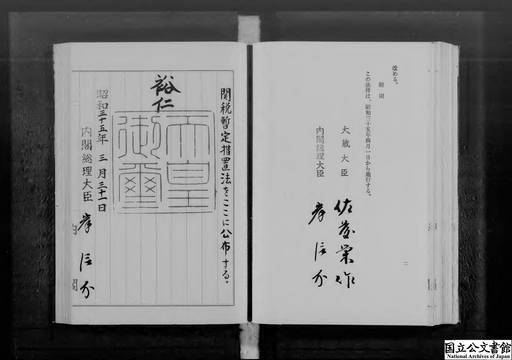 改める。
附則
この法律は、昭和三十五年四月一日から施行する。
大蔵大臣 佐藤栄作
内閣総理大臣 岸信介
二
関税暫定措置法をここに公布する。
裕仁
天皇御璽
昭和三十五年三月三十一日
内閣総理大臣 岸信介
国立公文書館
National Archives of Japan